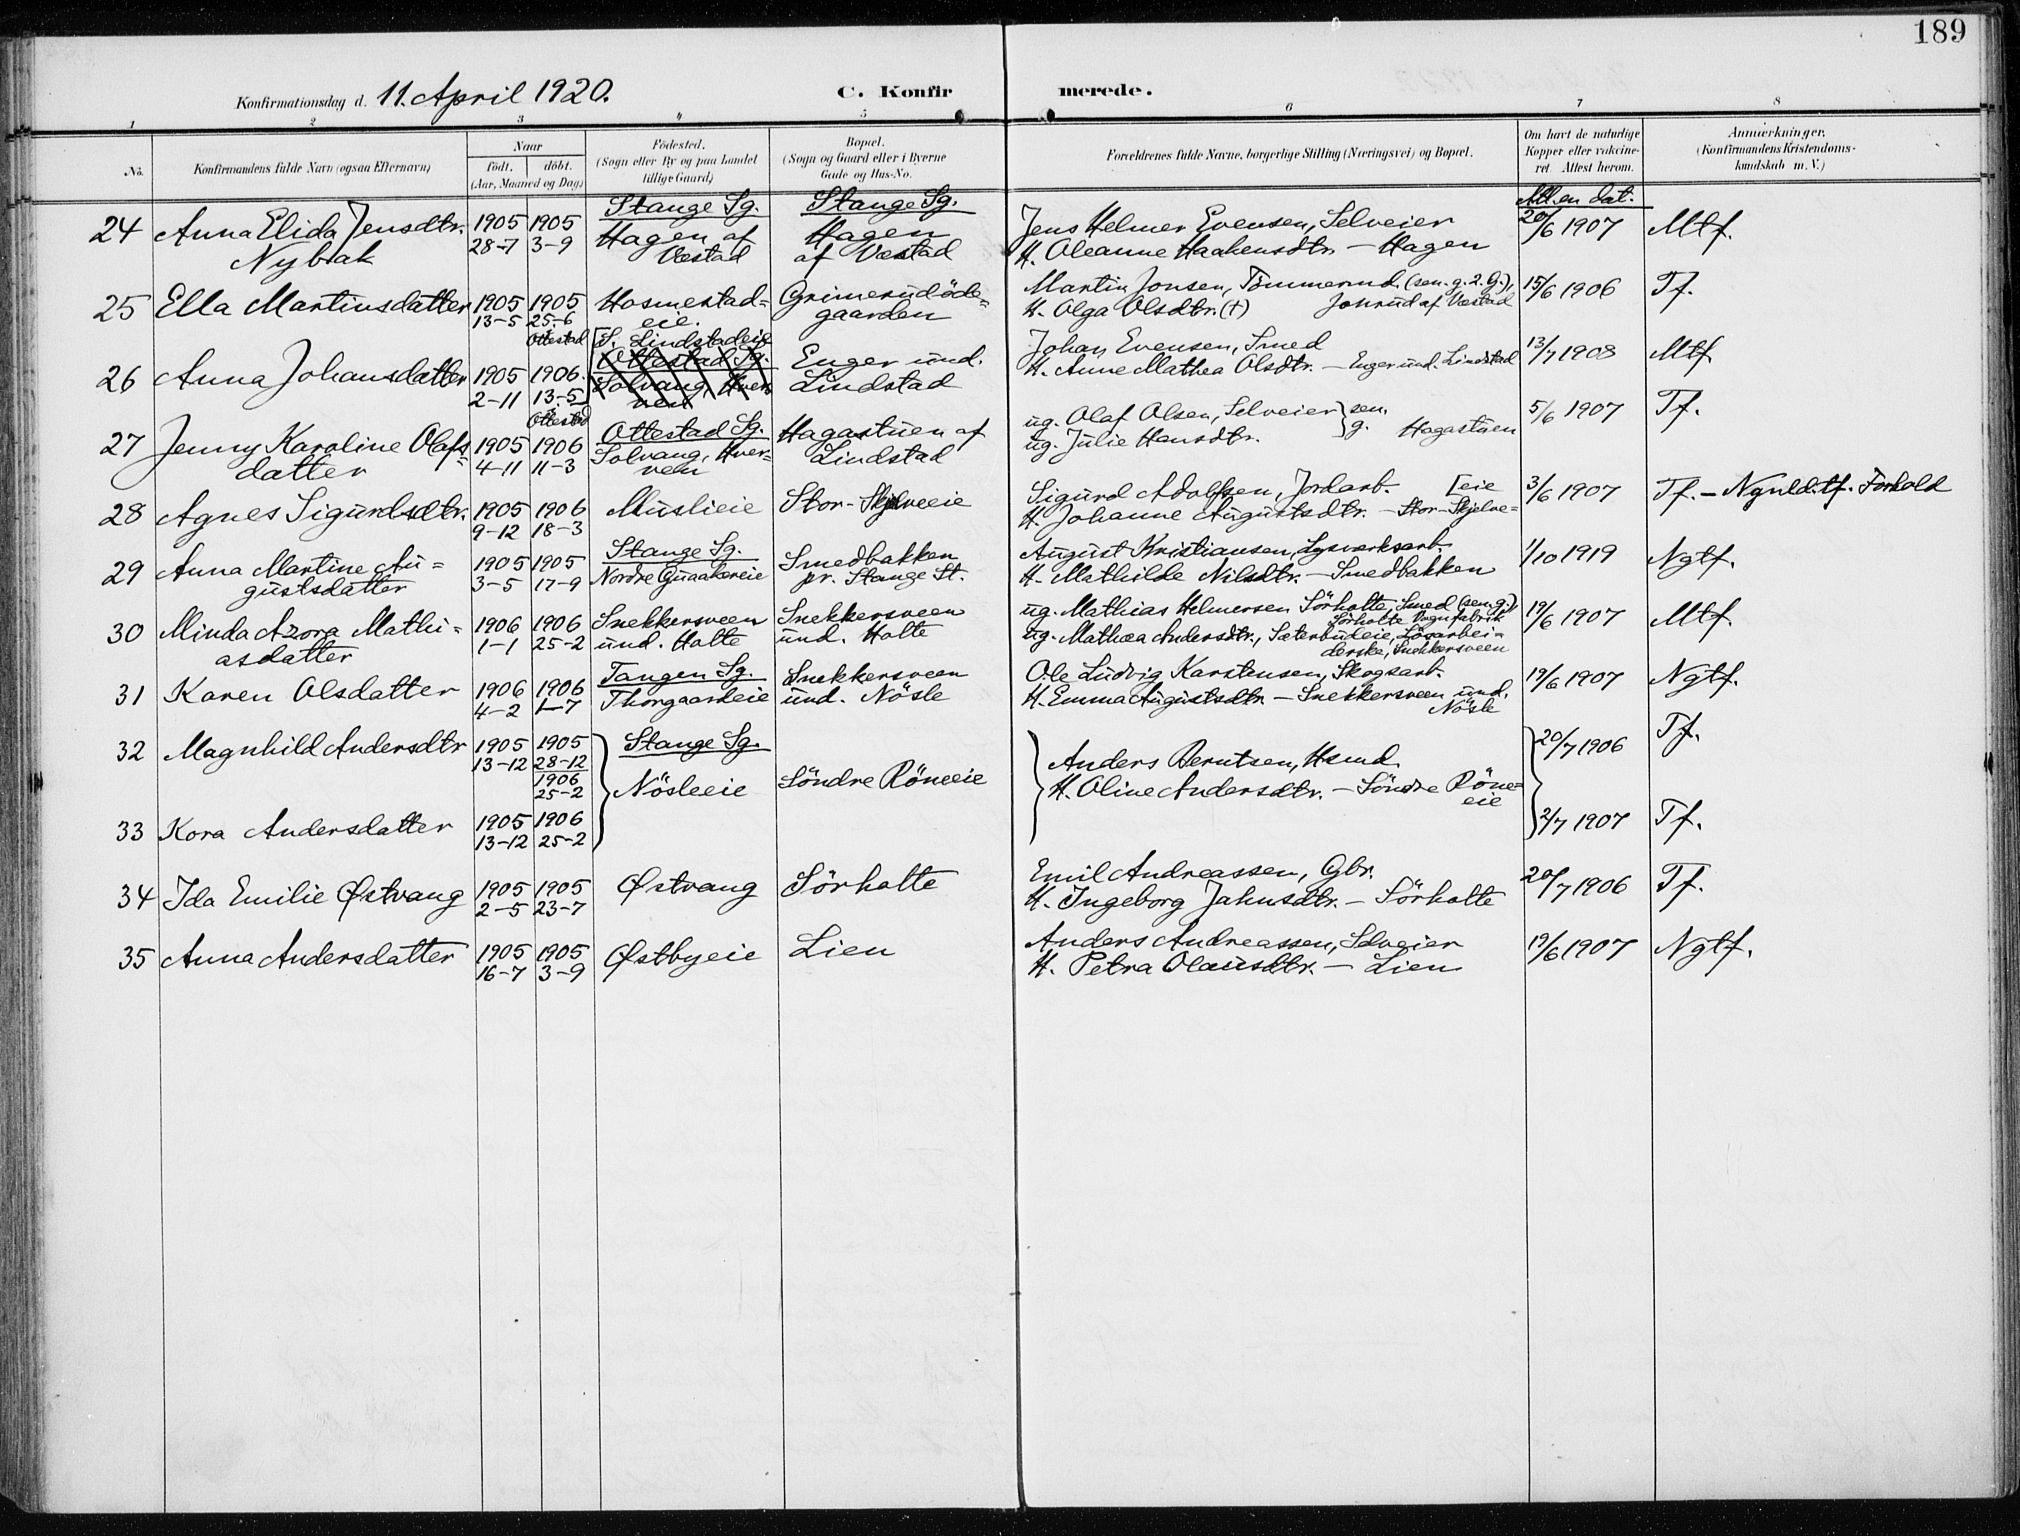 189
Konfirmationsdag d. 11. April 1920. C. Konfirmerede.
1 2 3 4 5 6 7 8
No. Konfirmandens fulde Navn (ogsaa Efternavn) Naar födt. döbt. (Aar, Maaned og Dag) Födested. (Sogn eller By og paa Landet tillige Gaard) Bopæl. (Sogn og Gaard eller i Byerne Gade og Hus-No. Forældrenes fulde Navne, borgerlige Stilling (Næringsvei) og Bopæl. Om havt de naturlige Kopper eller vakcineret. Attest herom. Anmærkninger. (Konfirmandens Kristendomskundskab m. V.)
Stange Sg. Stange Sg. Att. en dat.
24 Anna Elida Jensdtr. 1905 1905 Hagen af Hagen Jens Helmer Evensen, Selveier 20/6 1907 Mtf.
Nybak 28-7 3-9 Væstad af Væstad H. Oleanne Haakensdtr. – Hagen
25 Ella Martinsdatter 1905 1905 Hosmestad= Grimerudöde= Martin Jonsen, Tömmermd. (sen. g. 2. G.), 15/6 1906 Tf.
13-5 25-6 eie. gaarden H. Olga Olsdtr. (†) Johrud af Væstad
Ottestad [S. Lindstadeie
Ottestad Sg.
26 Anna Johansdatter 1905 1906. Solvang, Hver= Enger und. Johan Evensen, Smed 13/7 1908 Mtf.
2-11 13-5 ven Lindstad H. Anne Mathea Olsdtr. – Enger und. Lindstad
Ottestad Ottestad Sg.
27 Jenny Karoline Olafs= 1905 1906 Solvang, Hver= Hagastuen af ug. Olaf Olsen, Selveier } sen. 5/6 1907 Tf.
datter 4-11 11-3 ven Lindstad ug. Julie Hansdtr. g. Hagastuen
28 Agnes Sigurdsdtr. 1905 1906 Muslieie Stor-Skjelveeie Sigurd Adolfsen, Jordarb. [eie 3/6 1907 Tf. –
9-12 18-3 H. Johanne Augustsdtr. – Stor-Skjelve=
Stange Sg.
29 Anna Martine Au= 1905 1905 Nordre Guaakereie Smedbakken August Kristiansen, Lysverksarb. 1/10 1919 Ngtf.
gustsdatter 3-5 17-9 pr. Stange St. H. Mathilde Nilsdtr. – Smedbakken
30 Minda Azora Mathi= 1906 1906 Snekkersveen Snekkersveen ug. Mathias Helmersen Sörholte, Smed (sen. g.) 19/6 1907 Mtf.
asdatter 1-1 25-2 und. Holte und. Holte Sörholte Vognfabrik
ug. Mathea Andersdtr., Sæterbudeie, Lösarbei=
derske, Snekkersveen
Tangen Sg.
31 Karen Olsdatter 1906 1906 Thorgaardeie Snekkersveen Ole Ludvig Karstensen, Skogsarb. 19/6 1907 Ngtf.
4-2 1-7 und. Nösle H. Emma Augustsdtr. – Snekkersveen und.
Nösle
32 Magnhild Andersdtr 1905 1905 Stange Sg. 20/7 1906 Tf.
13-12 28-12
1906 25-2 Nösleeie Söndre Röneeie Anders Berntsen, Hsmd.
H. Oline Andersdtr. – Söndre Röne=
eie
33 Kora Andersdatter 1905 1906 2/7 1907 Tf.
13-12 25-2
34 Ida Emilie Østvang 1905 1905 Østvang Sörholte Emil Andreassen, Gbr. 20/7 1906 Tf.
2-5 23-7 H. Ingeborg Jahnsdtr. – Sörholte
35 Anna Andersdatter 1905 1905 Østbyeie Lien Anders Andreassen, Selveier 19/6 1907 Ngtf.
16-7 3-9 H. Petra Olausdtr. – Lien